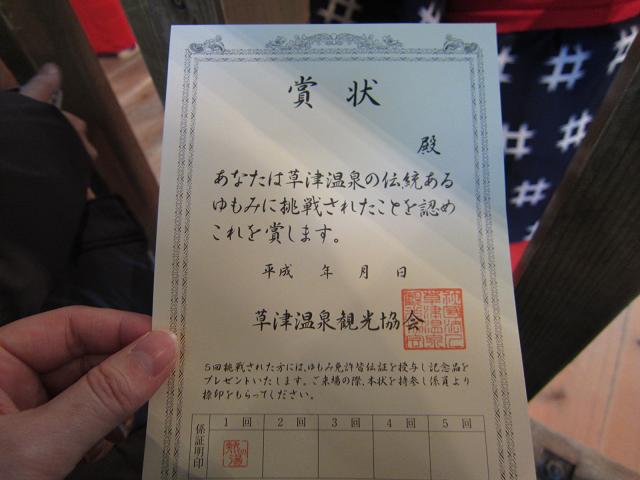 賞状
殿
あなたは草津温泉の伝統ある
ゆもみに挑戦されたことを認め
これを賞します。
平成 年 月 日
草津温泉観光協会
5回挑戦された方には、ゆもみ免許皆伝証を授与し記念品を
プレゼントいたします。ご来場の際、本状を持参し係員より
捺印をもらってください。
係証明印
1 回 2 回 3 回 4 回 5 回